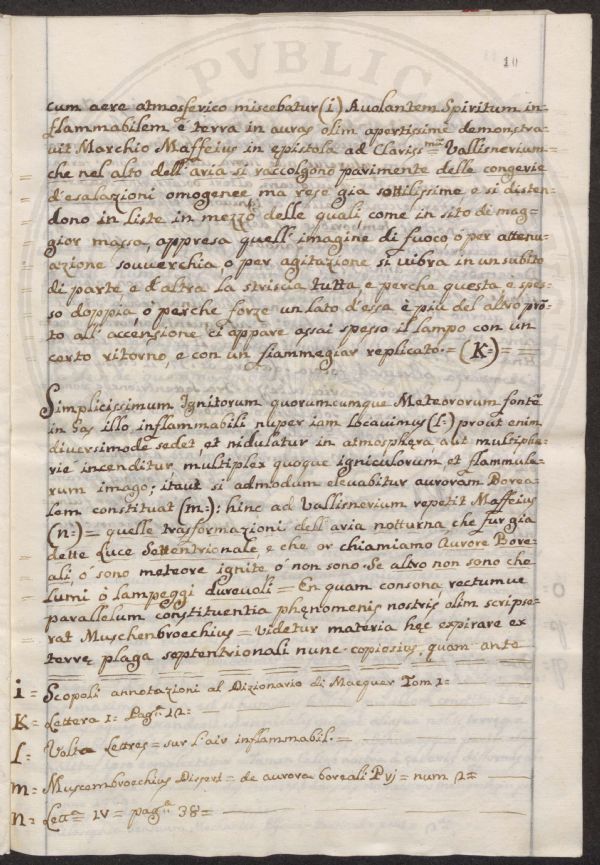 PVBLIC
10
cum aere atmosferico miscebatur (i) Avolantem Spiritum in=
flammabilem è terra in auras olim apertissimè demonstra=
vit Marchio Maffeius in epistola ad Clariss.mum Vallisnerium=
che nel alto dell'aria si raccolgono parimente delle congerie
d'esalazioni omogenee ma rese già sottilissime e si disten=
dono in liste in mezzo delle quali, come in sito di mag=
gior massa, appresa quell'imagine di fuoco o per attenu=
azione souverchia, o per agitazione si vibra in un subito
di parte e d'altra la striscia tutta, e perche questa e spes=
so doppia, o perche forze un lato d'essa è piu del altro prõ=
to all'accensione ci appare assai spesso il lampo con un
certo ritorno, e con un fiammegiar replicato.= (K=) = =
Simplicissimum Ignitorum quorumcumque Meteororum fontẽ
in Gas illo inflammabili nuper iam locavimus (l=) prout enim
diversimodè sedet, et nidulatur in atmosphęra aut multipha=
riè incenditur, multiplex quoque igniculorum, et flammula=
rum imago; itaut si admodum elevabitur auroram Borea=
lem constituat (m=): hinc ad Vallisnerium repetit Maffeius
(n=) = quelle trasformazioni dell'aria notturna, che fur già
dette Luce Settentrionale, e che or chiamiamo Aurore Bore=
ali, ò sono meteore ignite, ò non sono. Se altro non sono che
Lumi ò lampeggi durevoli = En quam consona, rectumve
parallelum constituentia phęnomenis nostris olim scripse=
rat Muschenbroechius = Videtur materia hęc expirare ex
terrę plaga septentrionali nunc copiosius, quam ante
i = Scopoli annotazioni al Dizionario di Macquer Tom 1=
K = Lettera 1= Pag.n 12=
l = Volta Lettres = sur l'air inflammabil. =
m = Muscembroechius Dissert = de aurora boreali Prj = num 2=
n = Lett.a IV = pag.a 38=